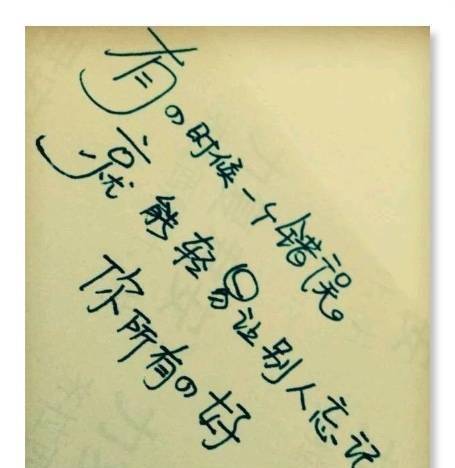 有の时候一个错误。
就能轻易让别人忘记
你所有の好